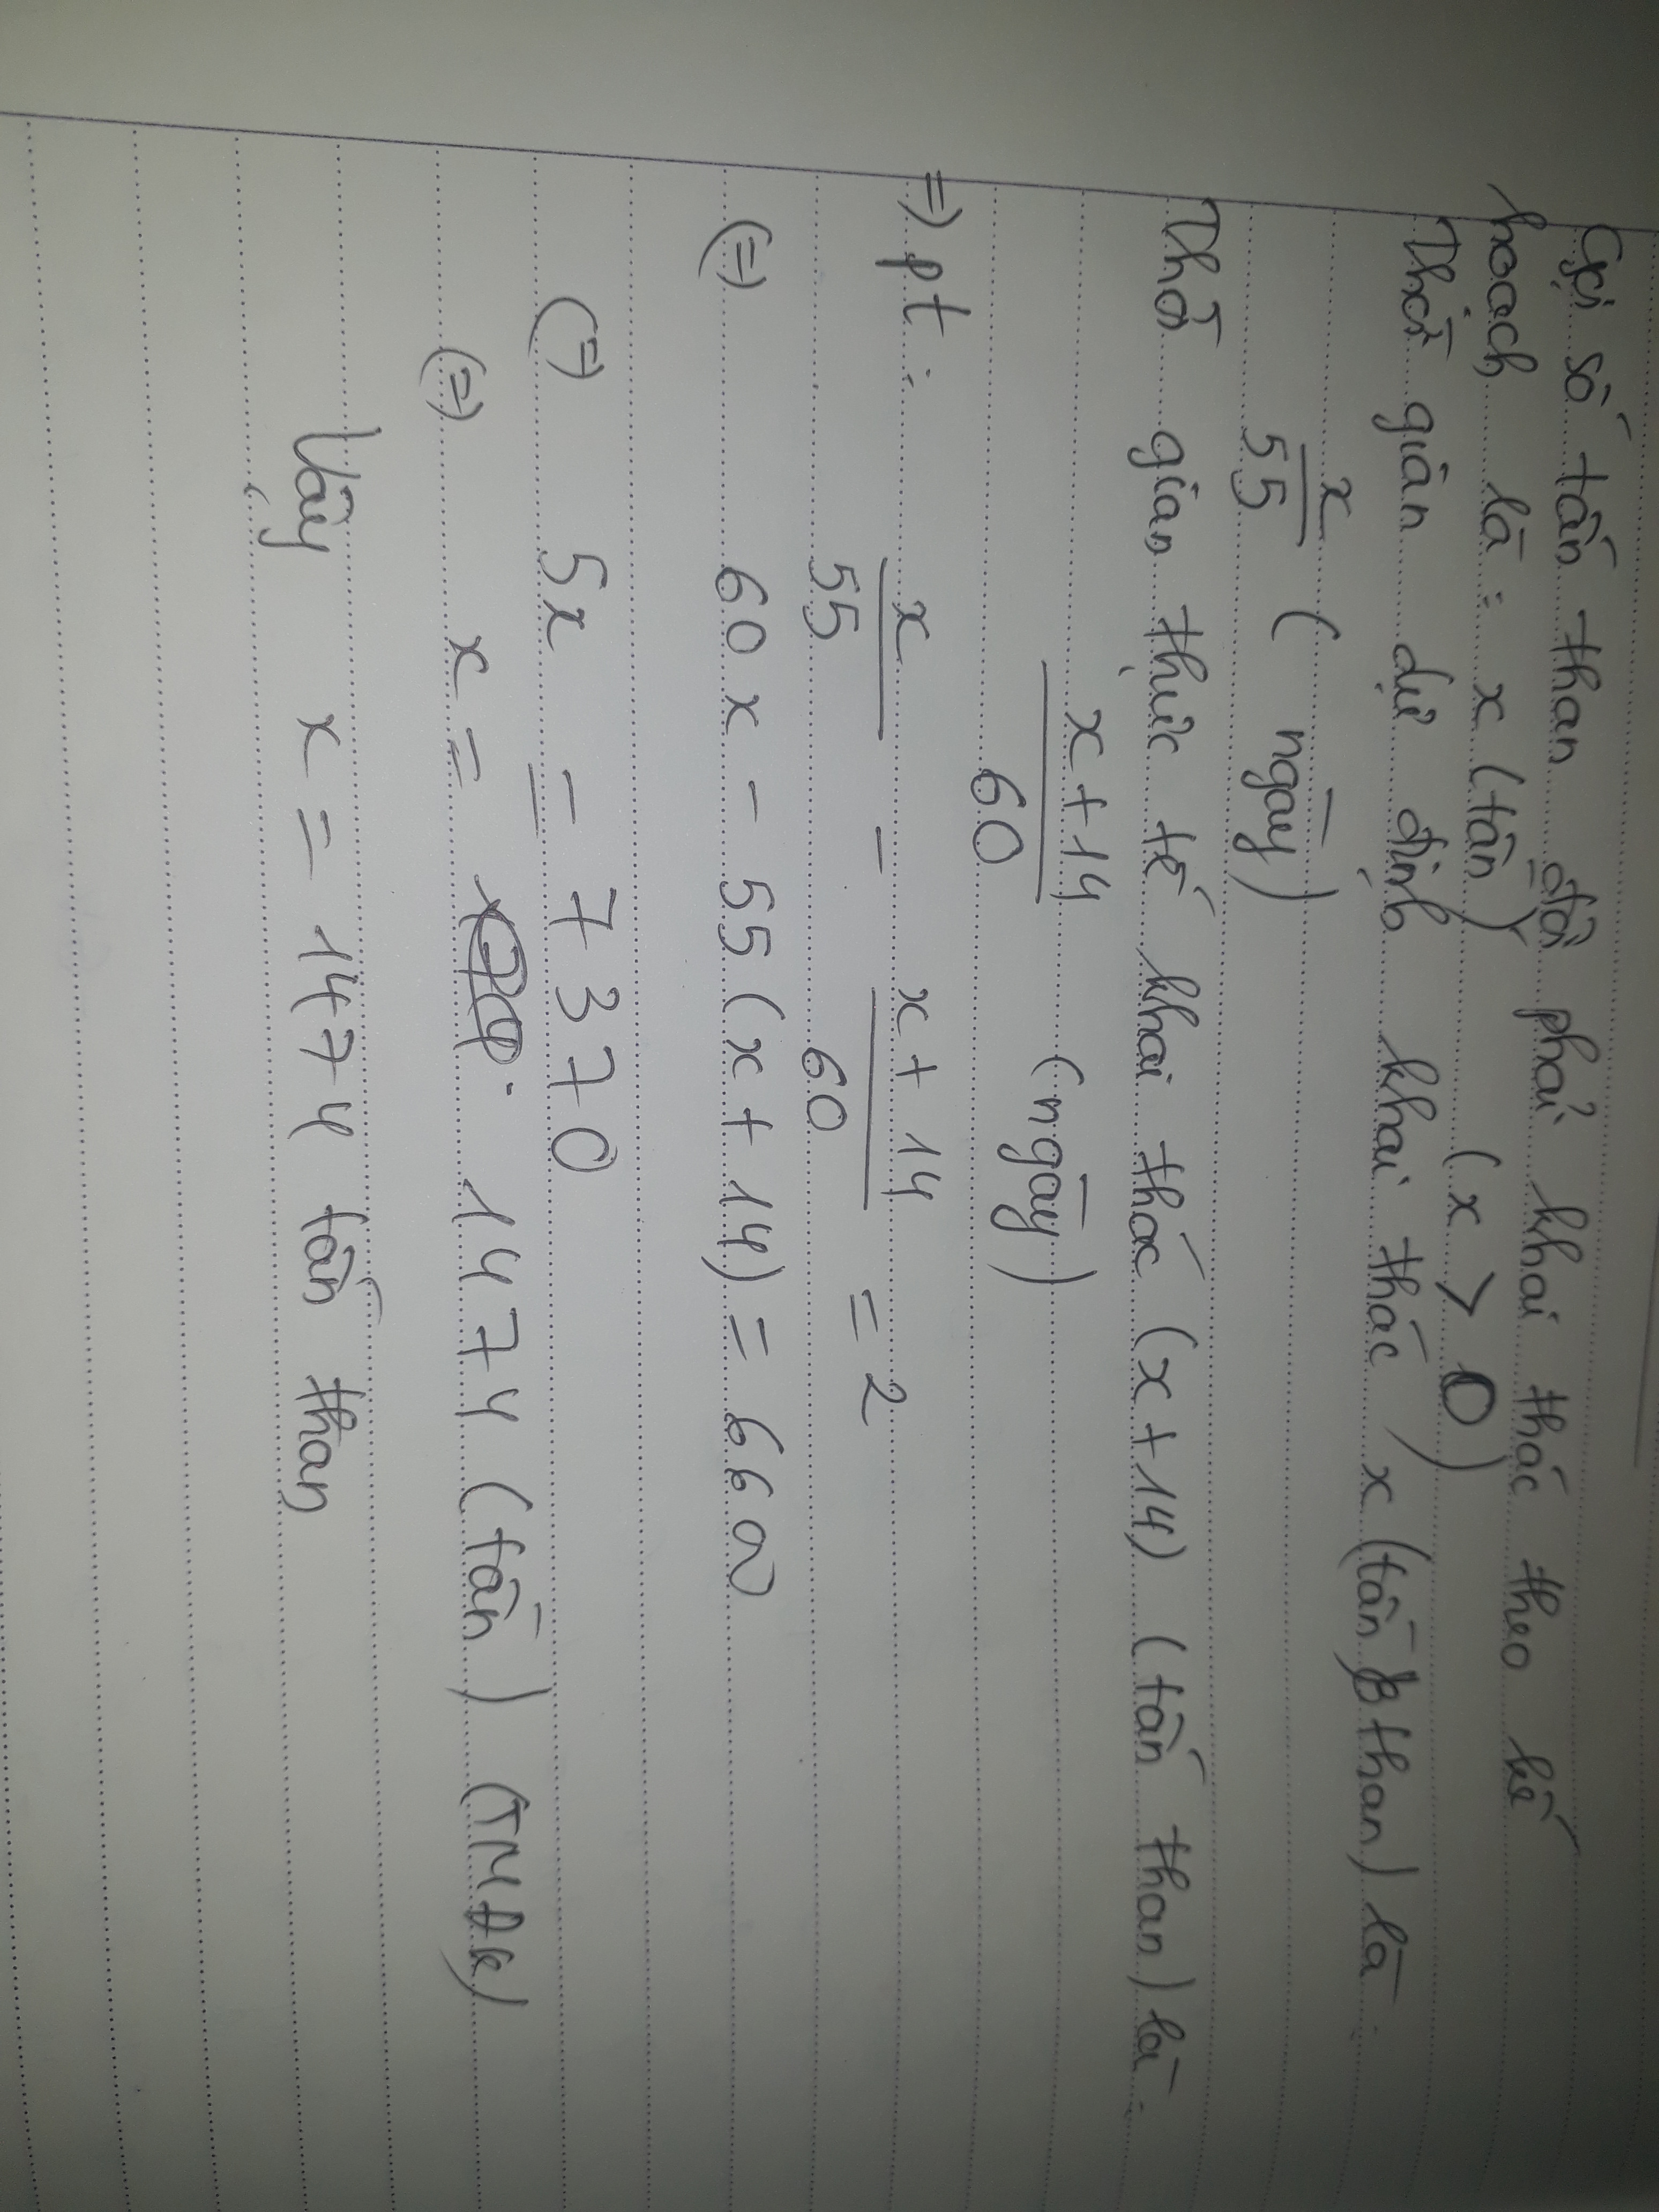 Gọi số tấn than đội phải khai thác theo kế
hoạch là : x (tấn) (x > 0)
Thời gian dự định khai thác x (tấn than) là
x/55 (ngày)
Thời gian thực tế khai thác (x+14) (tấn than) là :
x+14/60 (ngày)
=> pt : x/55 - x+14/60 = 2
(=) 60x - 55(x+14) = 6600
(=) 5x = 7370
(=) x = 1474 (tấn) (TMĐK)
Vậy x = 1474 tấn than